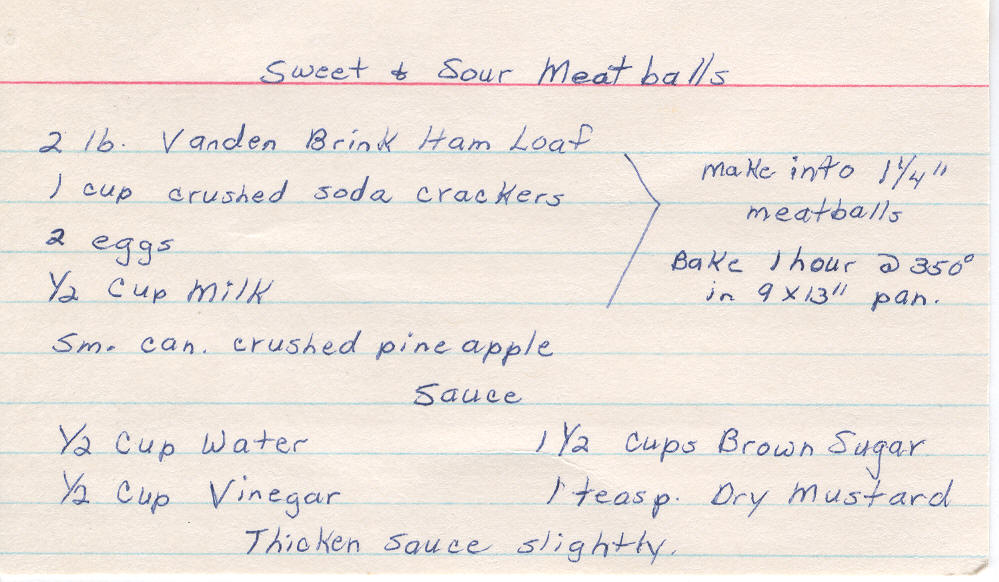 Sweet & Sour Meatballs
2 lb. Vanden Brink Ham Loaf
1 cup crushed soda crackers
2 eggs
1/2 Cup Milk
make into 1 1/4"
meatballs
Bake 1 hour @ 350°
in 9 x 13" pan.
Sm. can. crushed pineapple
Sauce
1/2 Cup Water 1 1/2 cups Brown Sugar
1/2 Cup Vinegar 1 teasp. Dry Mustard
Thicken sauce slightly.